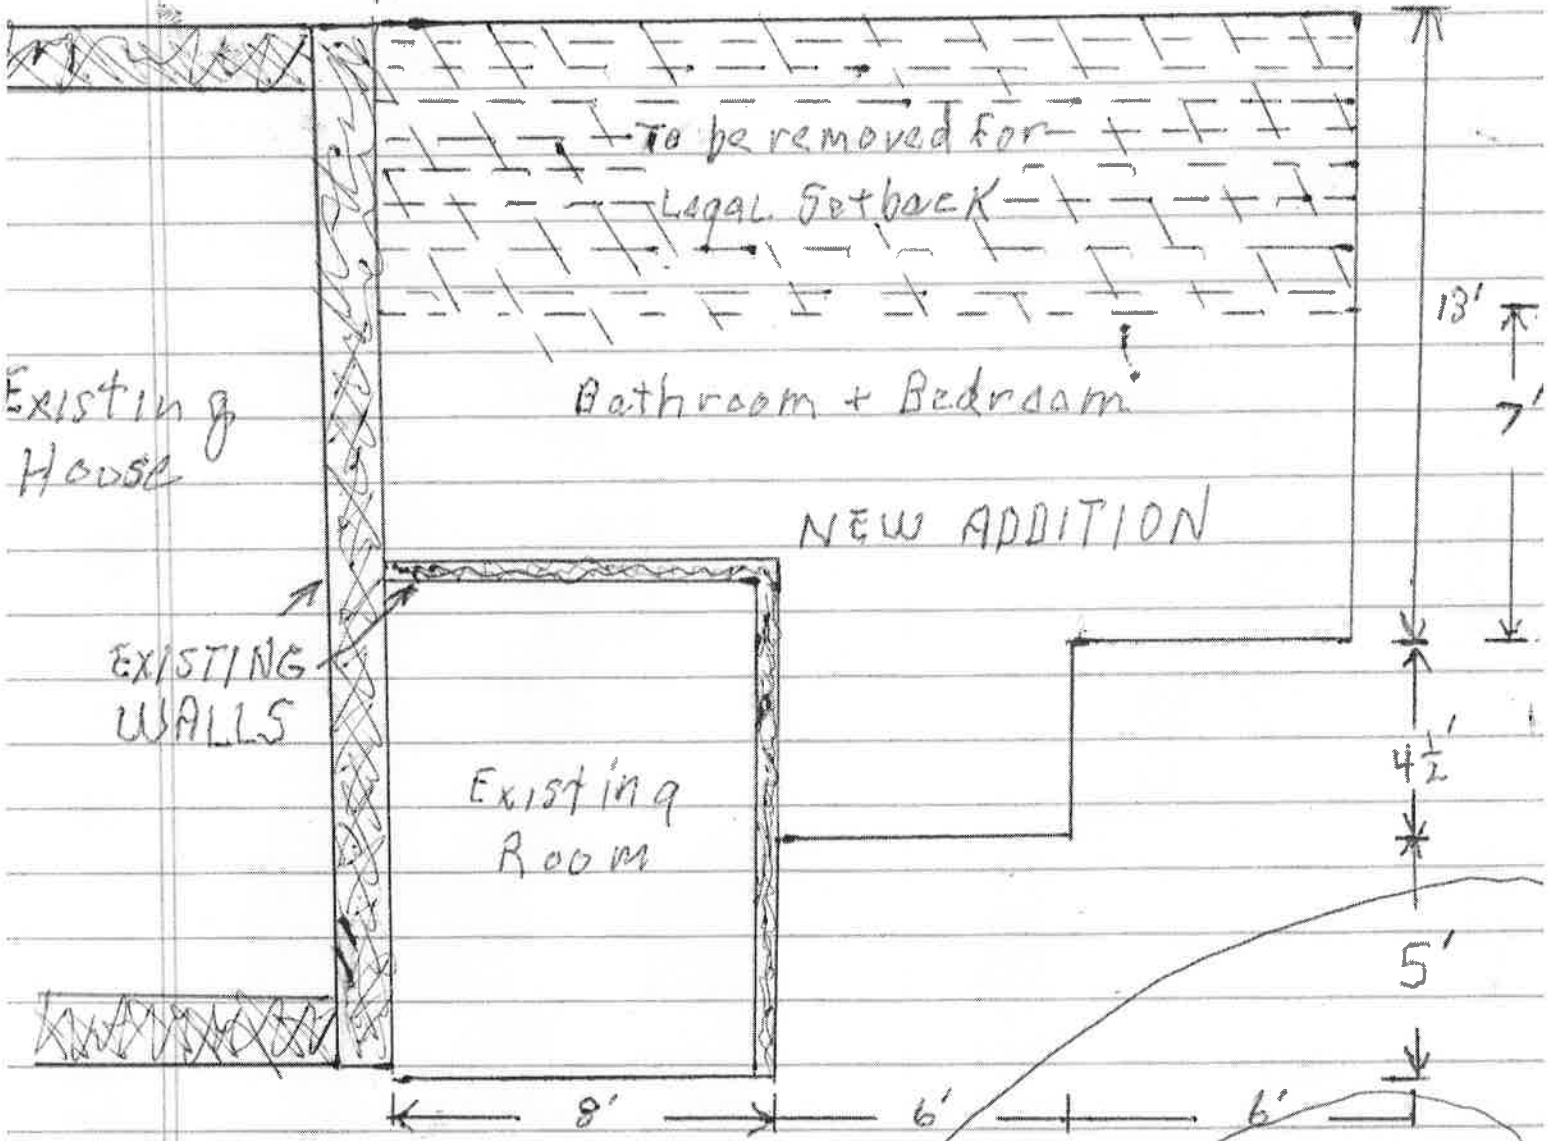 To be removed For
Legal Setback
13'
7'
Existing
House
Bathroom + Bedroom
NEW ADDITION
EXISTING
WALLS
4 1/2'
Existing
Room
5'
8'
6'
6'